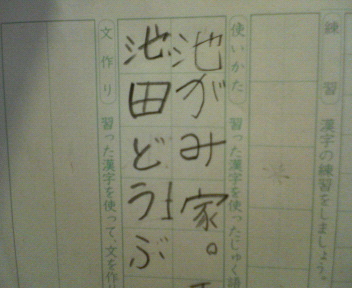 練習 漢字の練習をしましょう。
使いかた 習った漢字を使ったじゅく語
池がみ家。
池田どうぶ
文作り 習った漢字を使って、文を作